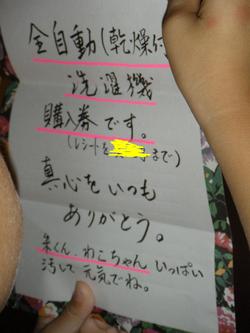 全自動(乾燥付
洗濯機
購入券です。
(レシートを まで)
真心をいつも
ありがとう。
朱くん、わこちゃん いっぱい
汚して 元気でね。